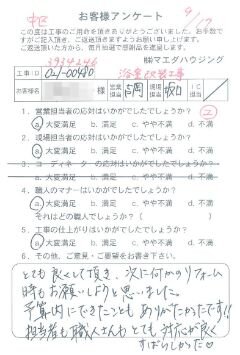 お客様アンケート
9/17
この度は工事のご用命を頂きありがとうございました。お手数で
すがご記入頂き、ご返送頂きますようお願い申し上げます。
ご返送頂いた方から、毎月抽選で感謝品を進呈します。
3934246
㈱マエダハウジング
工事ID
お客様名
様
営業担当
現場担当
1．営業担当者の応対はいかがでしたでしょうか？
a.大変満足 b.満足 c.やや不満 d.不満
2．現場担当者の応対はいかがでしたでしょうか？
a.大変満足 b.満足 c.やや不満 d.不満
3．コーディネーターの応対はいかがでしたでしょうか？
a.大変満足 b.満足 c.やや不満 d.不満
4．職人のマナーはいかがでしたでしょうか？
a.大変満足 b.満足 c.やや不満 d.不満
それはどの職人でしょうか？（ ）
5．工事の仕上がりはいかがでしたでしょうか？
a.大変満足 b.満足 c.やや不満 d.不満
6．その他、ご意見・ご要望をお書き下さい。
とても良くして頂き、次に何かのリフォーム
時もお願いしようと思いました。
予算内にできたこともありがたかったです!!
担当者も職人さんもとても対応が良く
すばらしかった